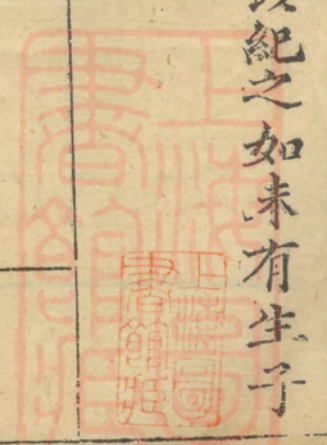 紀之如未有生子
上海圖書館藏